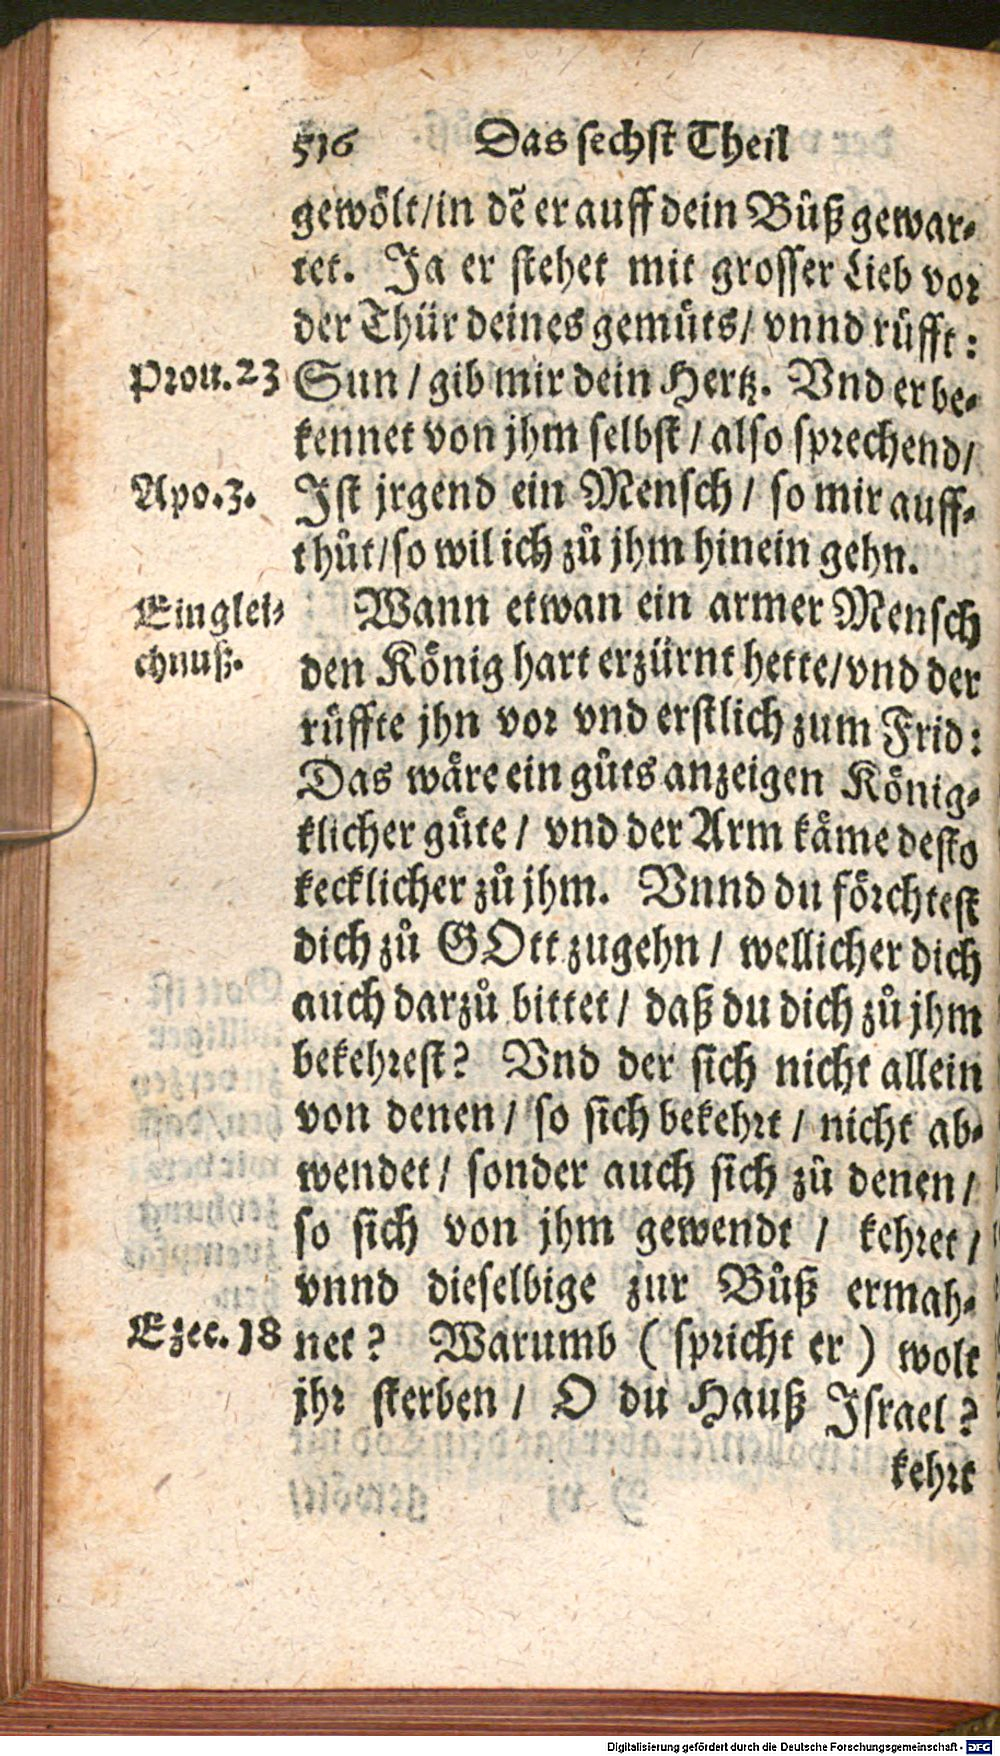 516 Das sechst Theil
gewölt/in dẽ er auff dein Bůß gewar⸗
tet. Ja er stehet mit grosser Lieb vor
der Thür deines gemüts/ vnnd rüfft:
Prou.23 Sun / gib mir dein Hertz. Vnd er be⸗
kennet von jhm selbst / also sprechend/
Apo.3. Ist jrgend ein Mensch / so mir auff⸗
thůt/so wil ich zů jhm hinein gehn.
Ein glei⸗ Wann etwan ein armer Mensch
chnuß. den König hart erzürnt hette/vnd der
rüffte jhn vor vnd erstlich zum Frid:
Das wäre ein gůts anzeigen König⸗
klicher güte / vnd der Arm käme desto
kecklicher zů jhm. Vnnd du förchtest
dich zů GOtt zugehn / wellicher dich
auch darzů bittet / daß du dich zů jhm
bekehrest? Vnd der sich nicht allein
von denen / so sich bekehrt / nicht ab⸗
wendet / sonder auch sich zů denen /
so sich von jhm gewendt / kehret /
vnnd dieselbige zur Bůß ermah⸗
Ezec.18 net? Warumb ( spricht er ) wolt
jhr sterben / O du Hauß Israel ?
kehrt
Digitalisierung gefördert durch die Deutsche Forschungsgemeinschaft - DFG